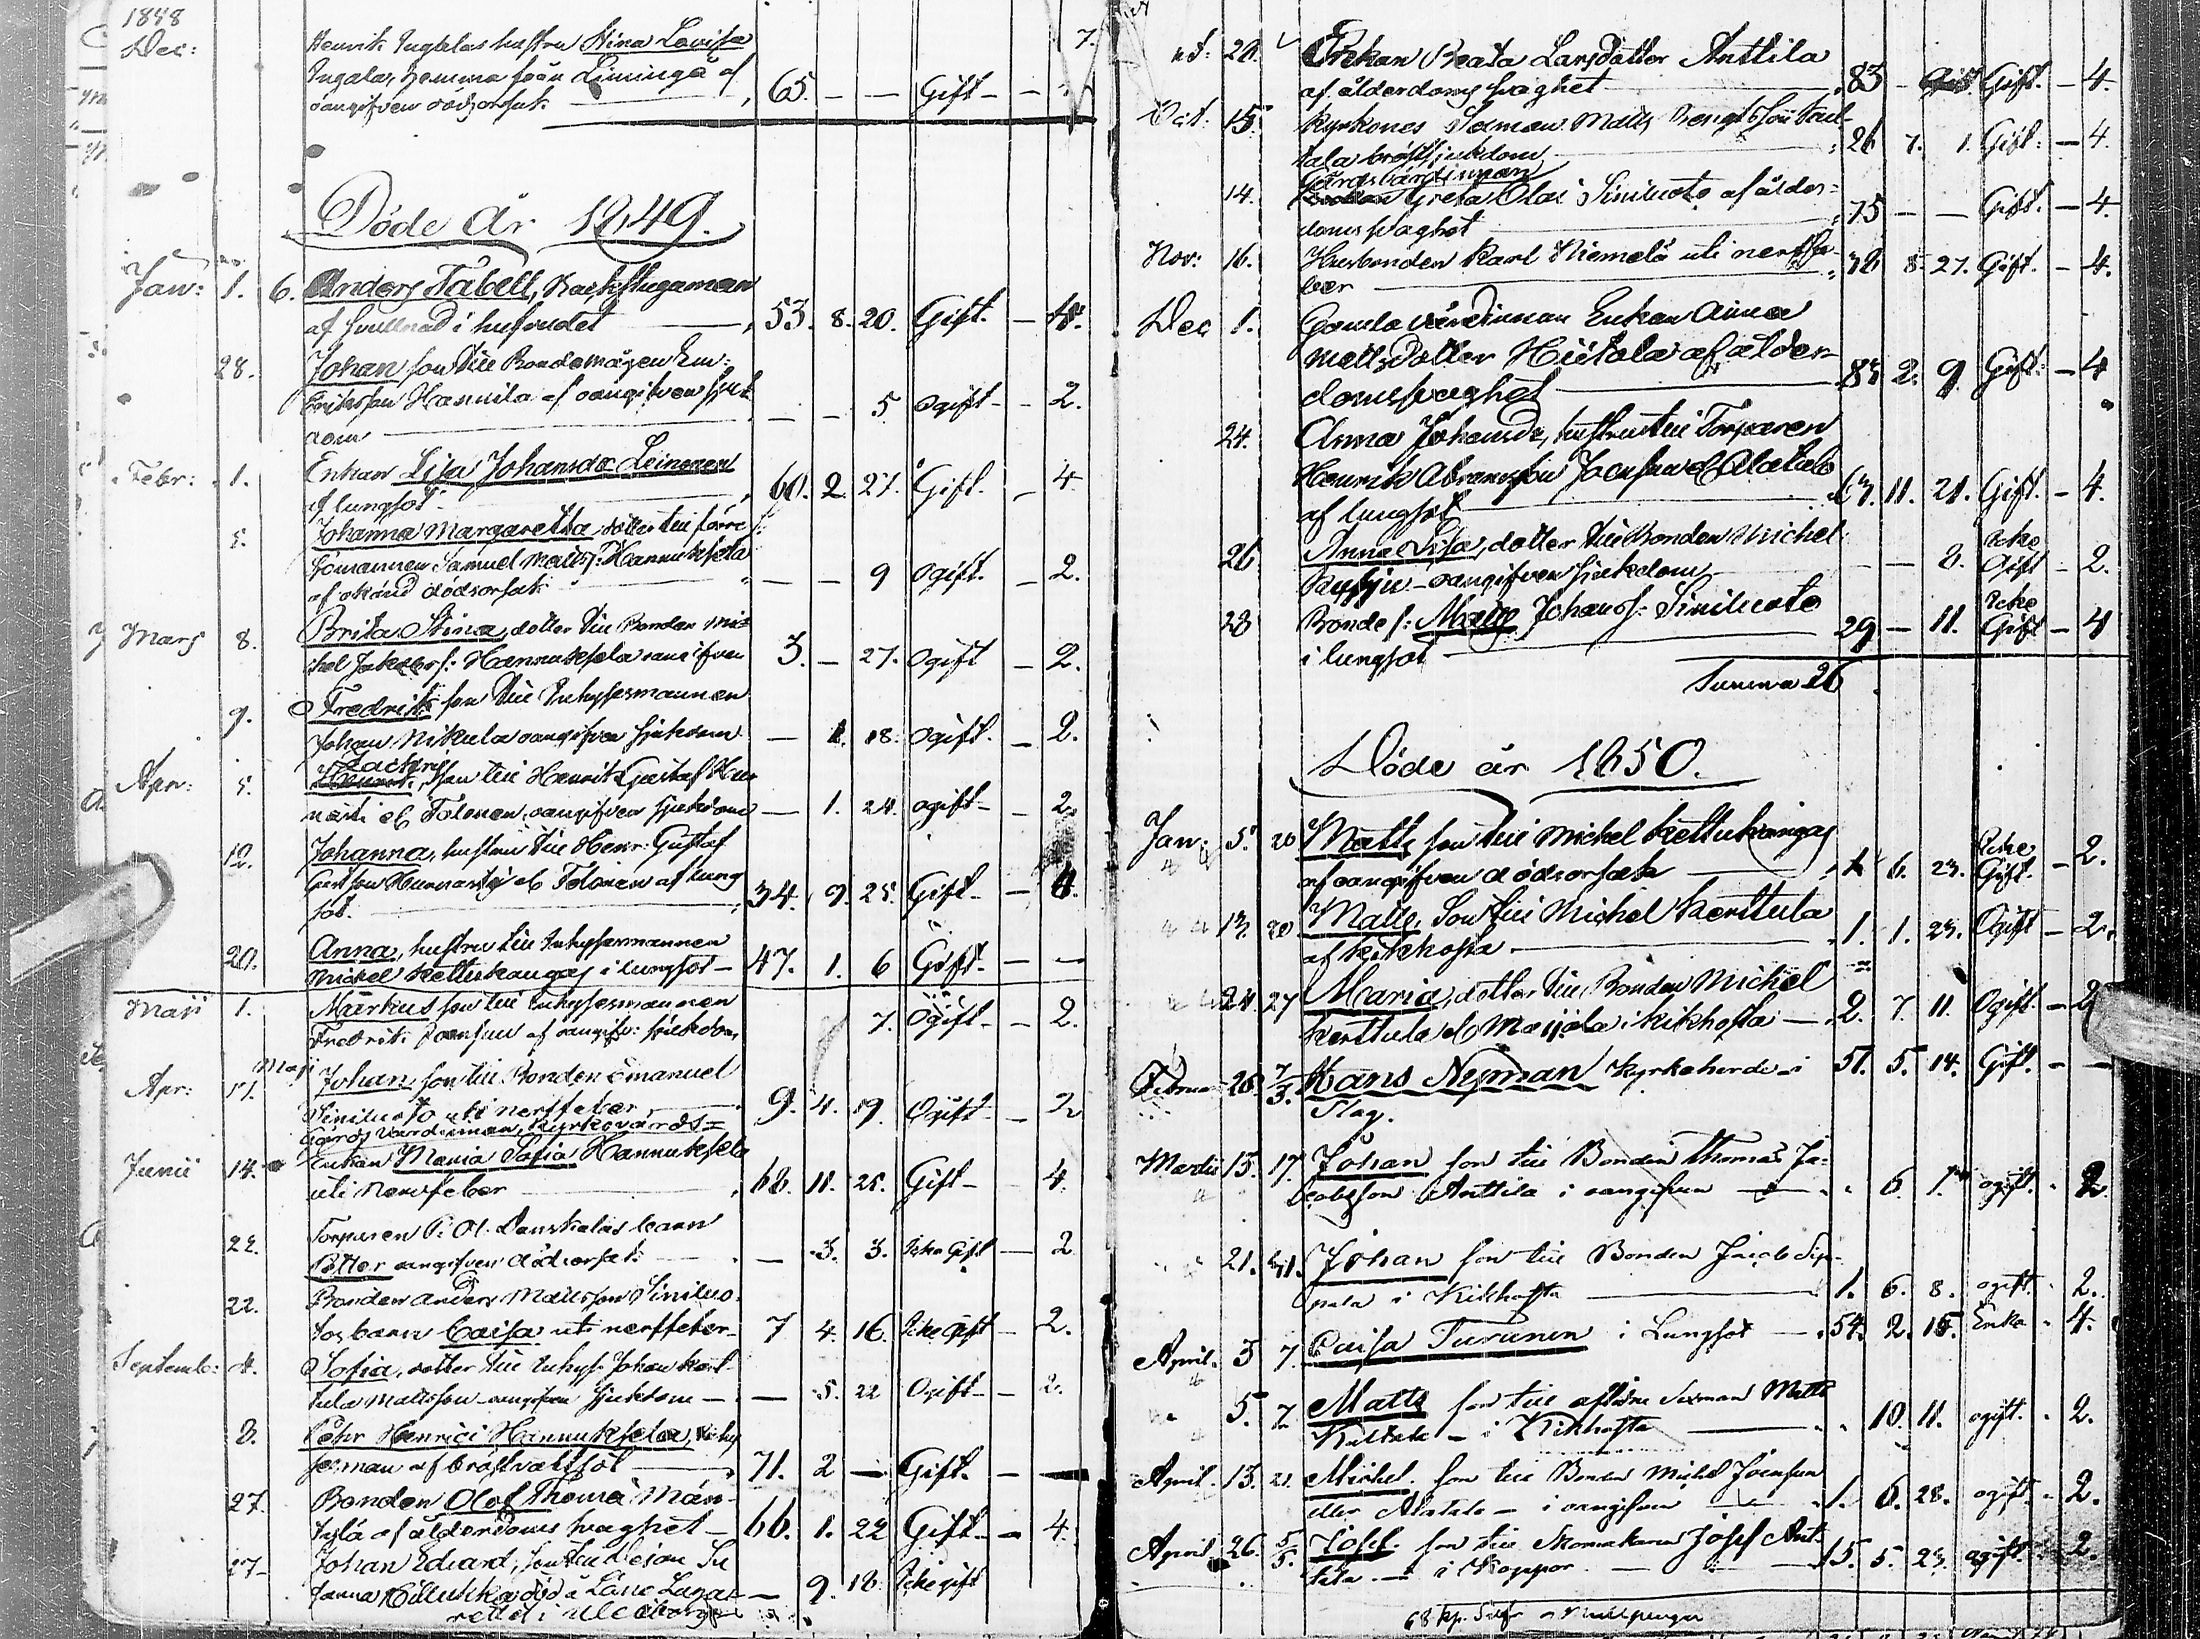 1848
Dec:
Henrik Ingalas hustru Stina Lovisa
Ingalas, hemma från Liminga af
oangifven dödsorsak 65. — — Gift — 7.
Döde År 1849.
Jan: 1. 6. Anders Tabell, Backstugaman
af svullnad i hufvudet 53. 8. 20. Gift. — 4.
28. Johan son till Bondemågen
Eriksson Hannila af oangifven sjuk
dom — — 5 ogift — 2.
Febr: 1. Enkan Lisa Johansdr Leinonen
af lungsot 60. 2. 27. Gift. — 4
5. Johanna Margaretha, dotter till förre
Samuel Matts: Hannuksela
af okänd dödsorsak — — 9 ogift. — 2.
Mars 8. Brita Stina, dotter till Bonden Mi-
chel Jakobs: Hannuksela oangifven 3. — 27. ogift — 2.
9. Fredrik son till Inhysesmannen
Johan Nikula oangifven sjukdom — 1. 18. ogift. — 2.
Apr: 5. Zachris
son till Henrik Gustaf
el Tolonen, oangifven sjukdom — 1. 24. ogift — 2.
12. Johanna, hustru till Henr: Gustaf
el Tolonen af lung
sot. 34. 9. 25. Gift — 4.
20. Anna, hustru till Inhysesmannen
Michel Kettukangas i lungsot — 47. 1. 6 Gift. — —
Maji 1. Markus son till Inhysesmannen
Fredrik Joensuu af oangifv: sjukdom, 7. ogift — 2.
Apr: Maji
11. Johan son till Bonden Emanuel
Siniluoto uti nerffeber 9. 4. 19. Ogift — 2
Gårds Värdinnan, Kyrkovärds=
Junii 14. Enkan Maria Sofia Hannuksela
uti Nervfeber 68. 11. 25. Gift — 4.
22. Torparen P: Ol: Danskalas barn
Petter oangifven dödsorsak — 3. 3. Icke Gift — 2
22. Bonden Anders Mattsson Siniluo-
tos barn Caisa uti nerffeber 7 4. 16. Icke Gift — 2.
Septemb: 4. Sofia, dotter till Inhys: Johan Kert-
tula Mattsson oangifven sjukdom — — 5. 22 Ogift — 2.
8. Pehr Henrici Hannuksela, Inhy
sesman af bröstvattsot 71. 2 — Gift. — —
27. Bonden Olof Thomæ Män-
tylä af ålderdoms svaghet — 66. 1. 22 Gift — 4
27. Johan Edvard, son till Pigan Su
sanna död å Läns Laza-
rettet i Uleåborg — 9. 18. Icke gift
28. Enkan Beata Larsdotter Anttila
af ålderdoms svaghet 83 — Gift. — 4.
Oct: 15. Kyrkones Sexman Matts Bengtsson
bröstsjukdom 26 7. 1. Gift: — 4.
Gårdsvärdinnan
14. Greta Olai Siniluoto af ålder=
doms svaghet 75 — — Gift. — 4.
Nov: 16. Husbonden Karl Niemelä uti nerffe-
ber 38 8. 27. Gift. — 4.
Dec 1. Gamla värdinnan Enkan Anna
Mattsdotter Hietala af ålder-
doms svaghet 83 2. 9 Gift: — 4
24. Anna Johansdr, hustru till Torparen
Henrik Abramsson Joensuu el Alatalo
af lungsot 63. 11. 21. Gift. — 4.
26 Anna Lisa, dotter till Bonden Michel
oangifven sjukdom — — 8. Icke
Gift — 2.
28 Bonde s: Matts Johans: Siniluoto
i lungsot 29 — 11. Icke
Gift — 4
Summa 26
Döde år 1850.
Jan: 5. 20 Matts son till Michel Kettukangas
af oangifven dödsorsak 1 6. 23. Icke
Gift. — 2.
13. 20 Matts, Son till Michel Kerttula
af kikhosta 1. 1. 23. Ogift — 2.
24 27 Maria, dotter till Bonden Michel
Kerttula el Marjala i kikhosta — 2. 7. 11. Ogift. — 2
Februar 26. 7/3. Hans Nyman Kyrkoherde i 51. 5. 14. Gift. — —
Slag.
Martii 15. 17. Johan son till Bonden Thomas Ja-
cobsson Anttila i oangifven 6. 1. ogift. 2
21. Johan son till Bonden Jacob Sip-
pala i Kikhosta 1. 6. 8. ogift. 2.
April. 3 7. Caisa Turunen i Lungsot 54. 2. 15. Enka. 4.
5. 7. Matts son till aflidne Sexman Matts
i Kikhosta 10. 11. ogift. 2.
April. 13. 21. Michel. son till Bonden Michel Joensuu
eller Alatalo — i oangifven 1. 6. 28. ogift. 2.
April 26. 5/5. Josef. son till Josef Ant-
tila. — i Koppor. 15. 5. 23. ogift. 2.